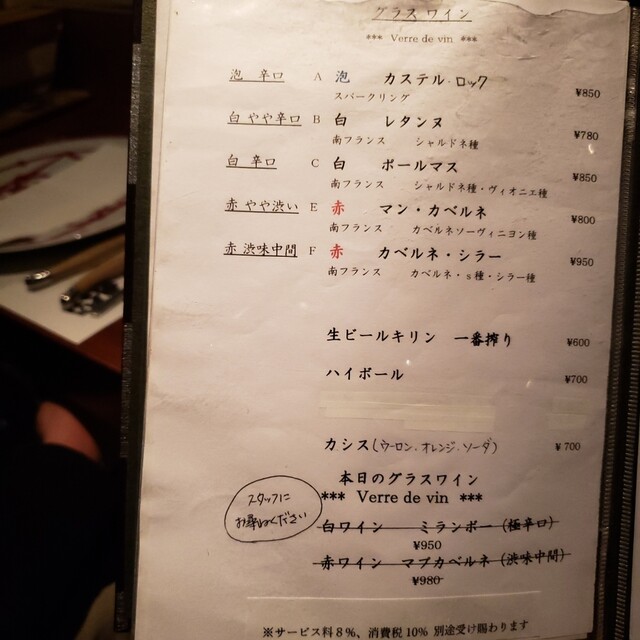 グラスワイン
*** Verre de vin ***
泡 辛口 A 泡 カステル・ロック
スパークリング ¥850
白 やや辛口 B 白 レタンヌ
南フランス シャルドネ種 ¥780
白 辛口 C 白 ポールマス
南フランス シャルドネ種・ヴィオニエ種 ¥850
赤 やや渋い E 赤 マン・カベルネ
南フランス カベルネソーヴィニヨン種 ¥800
赤 渋味中間 F 赤 カベルネ・シラー
南フランス カベルネ・s種・シラー種 ¥950
生ビールキリン 一番搾り ¥600
ハイボール ¥700
カシス(ウーロン.オレンジ.ソーダ) ¥700
本日のグラスワイン
*** Verre de vin ***
スタッフに
お尋ねください
白ワイン ミランボー(極辛口)
¥950
赤ワイン マプカベルネ(渋味中間)
¥980
※サービス料8%、消費税10% 別途受け賜わります